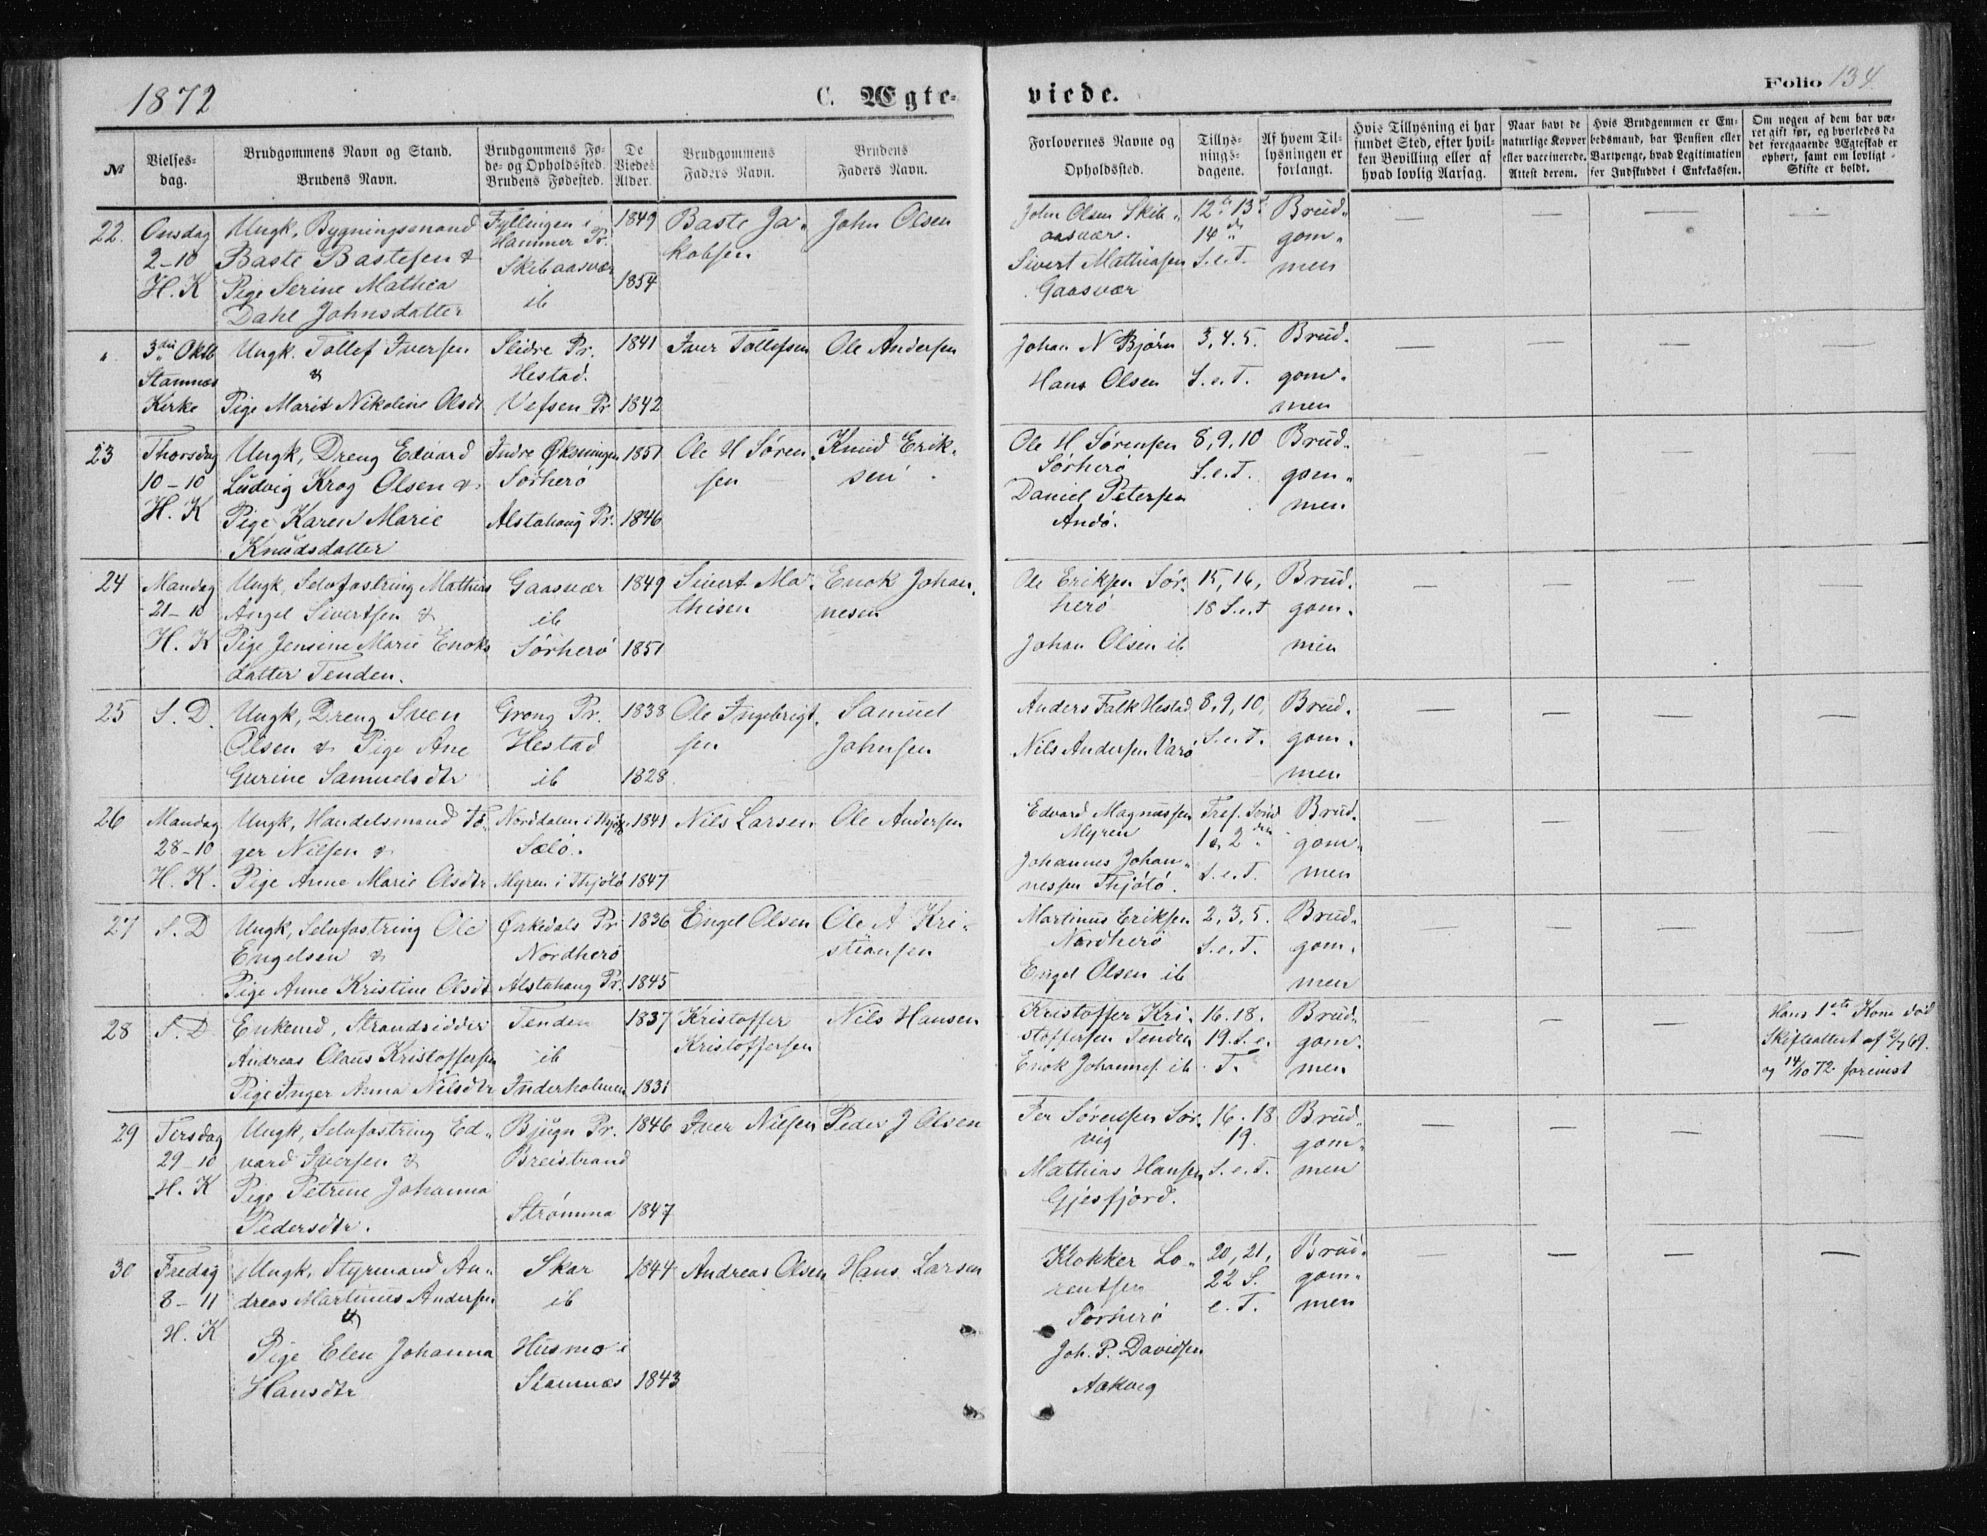 1872
C. Ægte-
viede.
Folio 134
№
Vielses-
dag.
Brudgommens Navn og Stand.
Brudens Navn.
Brudgommens Fø-
de- og Opholdssted.
Brudens Fødested.
De
Viedes
Alder.
Brudgommens
Faders Navn.
Brudens
Faders Navn.
Forlovernes Navne og
Opholdssted.
Tillys-
nings-
dagene.
Af hvem Til-
lysningen er
forlangt.
Hvis Tillysning ei har
fundet Sted, efter hvil-
ken Bevilling eller af
hvad lovlig Aarsag.
Naar havt de
naturlige Kopper
eller vaccinerede.
Attest derom.
Hvis Brudgommen er Em-
bedsmand, har Pension eller
Vartpenge, hvad Legitimation
for Indskuddet i Enkekassen.
Om nogen af dem har væ-
ret gift før, og hvorledes da
det foregaaende Ægteskab er
ophørt, samt om lovligt
Skifte er holdt.
22. Onsdag
2-10
H. K
Ungk, Bygningsmand
Baste Bastesen &
Pige Serine Mathea
Dahl Johnsdatter
Fyllingen i
Hammer Pr.
Skibaasvær
ib
1849
1854
Baste Ja-
kobsen
John Olsen
John Olsen Skib-
aasvær.
Sivert Mathiasen
Gaasvær
12te 13de
14de
S. e. T.
Brud-
gom-
men
" 3die Oktb
Stamnes
Kirke
Ungk. Tollef Iversen
&
Pige Marit Nikoline Olsdt
Slidre Pr.
Hestad.
Vefsen Pr
1841
1842
Iver Tollefsen
Ole Andersen
Johan N Bjørn
Hans Olsen
3, 4, 5.
S. e. T.
Brud-
gom-
men
23 Thorsdag
10-10
H. K
Ungk, Dreng Edvard
Ludvig Krog Olsen &
Pige Karen Marie
Knudsdatter
Indre Øksningen
Sørherø
Alstahaug Pr.
1851
1846
Ole H Søren-
sen
Knud Erik-
sen
Ole H Sørensen
Sørherø
Daniel Petersen
Andø.
8, 9, 10
S. e. T.
Brud-
gom-
men
24 Mandag
21-10
H. K
Ungk, Selvfostring Mathias
Angel Sivertsen &
Pige Jensine Marie Enoks
datter Tenden.
Gaasvær
ib
Sørherø
1849
1851
Sivert Ma-
thisen
Enok Johan-
nesen
Ole Eriksen Sør-
herø
Johan Olsen ib
15, 16,
18 S. e. T
Brud-
gom-
men
25 S. D.
Ungk, Dreng Sven
Olsen & Pige Ane
Gurine Samuelsdtr
Grong Pr.
Hestad
ib
1838
1828
Ole Ingebrigt-
sen
Samuel
Johnsen
Anders Falk Hestad
Nils Andersen Varø
8, 9, 10,
S. e. T.
Brud-
gom-
men
26 Mandag
28-10
H. K.
Ungk, Handelsmand Tø-
ger Nilsen &
Pige Anne Marie Olsdtr
Norddalen i Thjøt
Sælø.
Myren i Thjøtø
1841
1847
Nils Larsen
Ole Andersen
Edvard Magnussen
Myren
Johannes Johan-
nessen Thjøtø.
Tref. Sønd
1 & 2den
S. e. T.
Brud-
gom-
men
27 S. D
Ungk, Selvfostring Ole
Engelsen &
Pige Anne Kristine Olsdt
Ørkedals Pr
Nordherø
Alstahaug Pr.
1836
1845
Engel Olsen
Ole A Kri-
stiansen
Martinus Eriksen
Nordherø
Engel Olsen ib
2, 3, 5.
S. e. T.
Brud-
gom-
men
28 S. D
Enkemd, Strandsidder
Andreas Olaus Kristoffersen
Pige Inger Anna Nilsdtr
Tenden
ib
Inderholmen
1837
1831
Kristoffer
Kristoffersen
Nils Hansen
Kristoffer Kri-
stoffersen Tenden
Enok Johannes. ib
16. 18.
19. S. e.
T.
Brud-
gom-
men
Hans 1ste Kone død
Skifteattest af 69.
og 14/10 72. forevist
29 Tirsdag
29-10
H. K
Ungk, Selvfostring Ed-
vard Iversen &
Pige Petrine Johanna
Pedersdtr.
Bjugn Pr.
Breistrand
Strømma
1846
1847
Iver Nilsen
Peder J Olsen
Per Sørensen Sør-
vig
Mathias Hansen
Gjesfjord.
16. 18
19.
S. e. T.
Brud-
gom-
men
30 Fredag
8-11
H. K
Ungk, Styrmand An-
dreas Martinus Andersen
&
Pige Elen Johanna
Hansdtr
Skar
ib
Husmo i
Stamnes
1844
1843
Andreas Olsen
Hans Larsen
Klokker Lo-
rentsen
Sørherø
Joh. P. Davidsen
Aakvig
20, 21,
22 S.
e. T.
Brud-
gom-
men